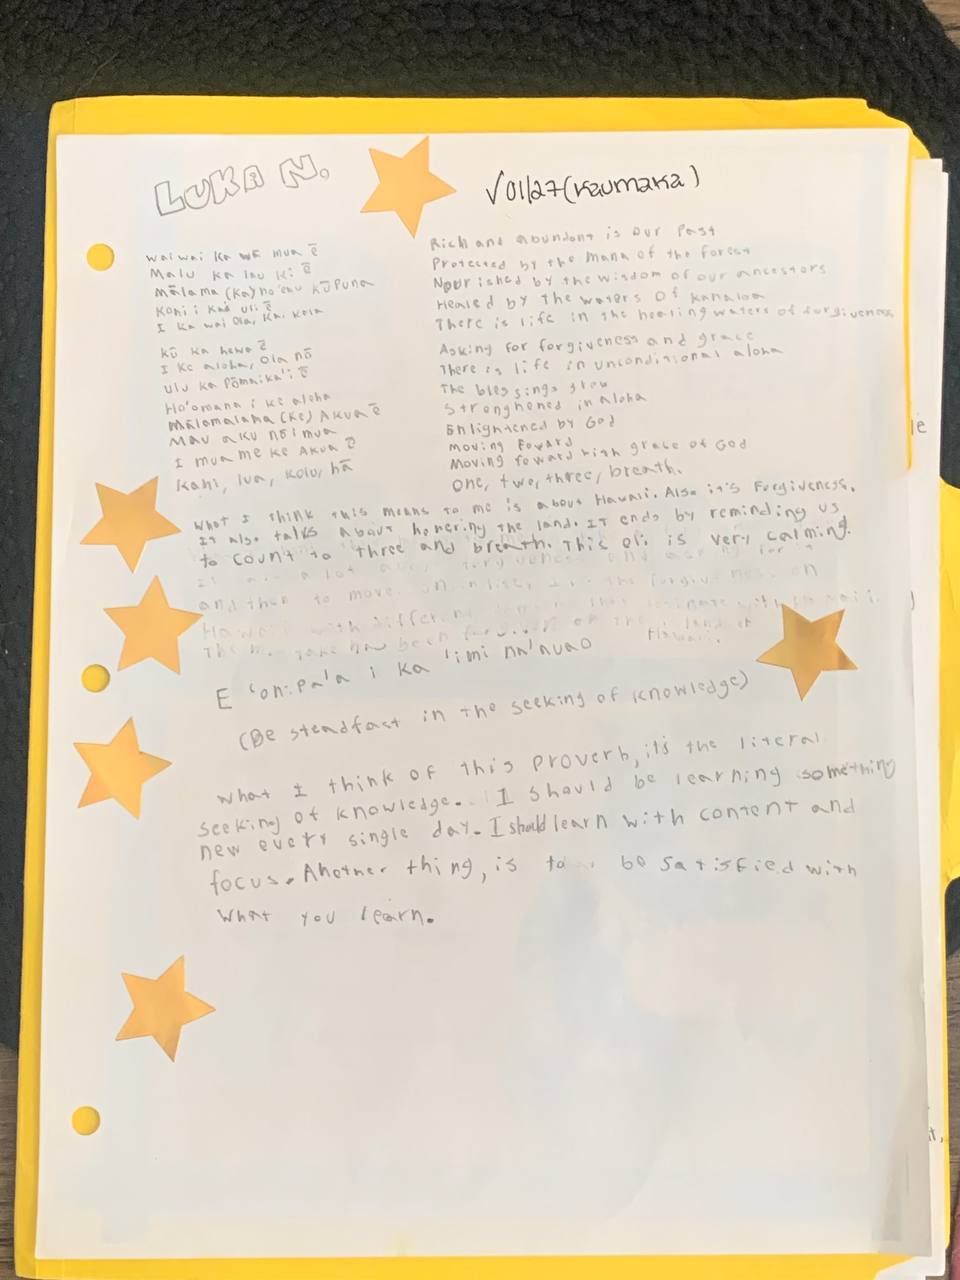 LUKA N.
√ 01/27 (Kaumaka)
Waiwai ka wā mua ē
Malu ka lau kī ē
Mālama (Ka) no'eau kūpuna
I ka wai Ola, Ka, Kala
Kū ka hewa ē
I Ke aloha, Ola nō
Ulu ka Pōmaika'i ē
Ho'omana i ke aloha
Mālamalama (Ke) AKUA ē
Mau aku nō i mua
I mua me ke AKUA ē
Kahi, lua, kolu, hā
Rich and abundant is our Past
Protected by the mana of the forest
Nourished by the wisdom of our ancestors
Healed by The waters Of kanaloa
There is life in the healing waters of forgiveness
Asking for forgiveness and grace
There is life in uncondisional aloha
The blessings grow
Stronghened in aloha
Enlightened by God
Moving Foward
Moving foward with grace of God
One, two, three, breath.
What I think this means to me is about Hawaii. Also it's Forgiveness.
It also talks About honering the land. IT ends by reminding us
to count to three and breath. This oli is very calming.
and then to move on
Hawaii with different
E 'onipa'a i ka 'imi na'auao
(Be steadfast in the seeking of knowledge)
What I think of this Proverb, it's the literal
seeking of knowledge. I should be learning something
new every single day. I should learn with content and
focus. Another thing, is to be satisfied with
what you learn.